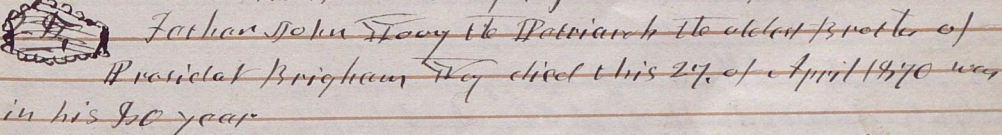 Father John Yoog the Patriarch the oldest Brother of
Presidet Brigham Yog died this 27. of April 1870 was
in his 80 year